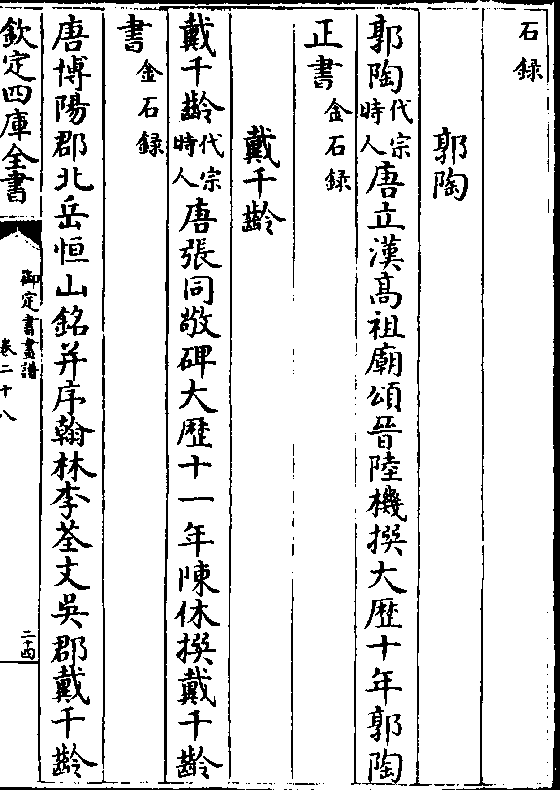 石録
郭陶
郭陶代宗時人唐立漢髙祖廟頌晉陸機撰大歴十年郭陶
正書金石録
戴千齡
戴千齡代宗時人唐張同敬碑大歴十一年陳休撰戴千齡
書金石録
唐博陽郡北岳恒山銘并序翰林李荃文吳郡戴千齡
欽定四庫全書
御定書畫譜
卷二十八
二十四